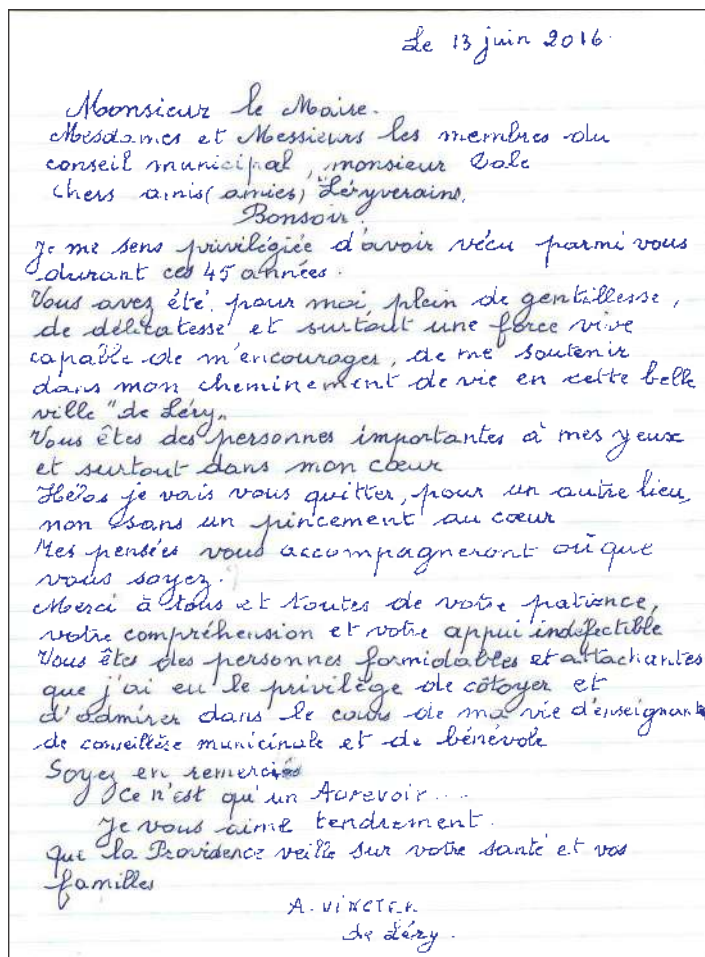 Le 13 juin 2016.
Monsieur le Maire.
Mesdames et Messieurs les membres du
conseil municipal, monsieur
chers amis (amies) Léryverains,
Bonsoir.
Je me sens privilégiée d'avoir vécu parmi vous
durant ces 45 années.
Vous avez été, pour moi, plein de gentillesse,
de délicatesse et surtout une force vive
capable de m'encourager, de me soutenir
dans mon cheminement de vie en cette belle
ville "de Léry"
Vous êtes des personnes importantes à mes yeux
et surtout dans mon cœur
Hélas je vais vous quitter, pour un autre lieu,
non sans un pincement au cœur
Mes pensées vous accompagneront où que
vous soyez.
Merci à tous et toutes de votre patience,
votre compréhension et votre appui indéfectible
Vous êtes des personnes formidables et attachantes
que j'ai eu le privilège de côtoyer et
d'admirer dans le cours de ma vie d'enseignante
de conseillère municipale et de bénévole
Soyez en remerciés
Ce n'est qu'un Aurevoir...
Je vous aime tendrement.
que la Providence veille sur votre santé et vos
familles
A.
de Léry.